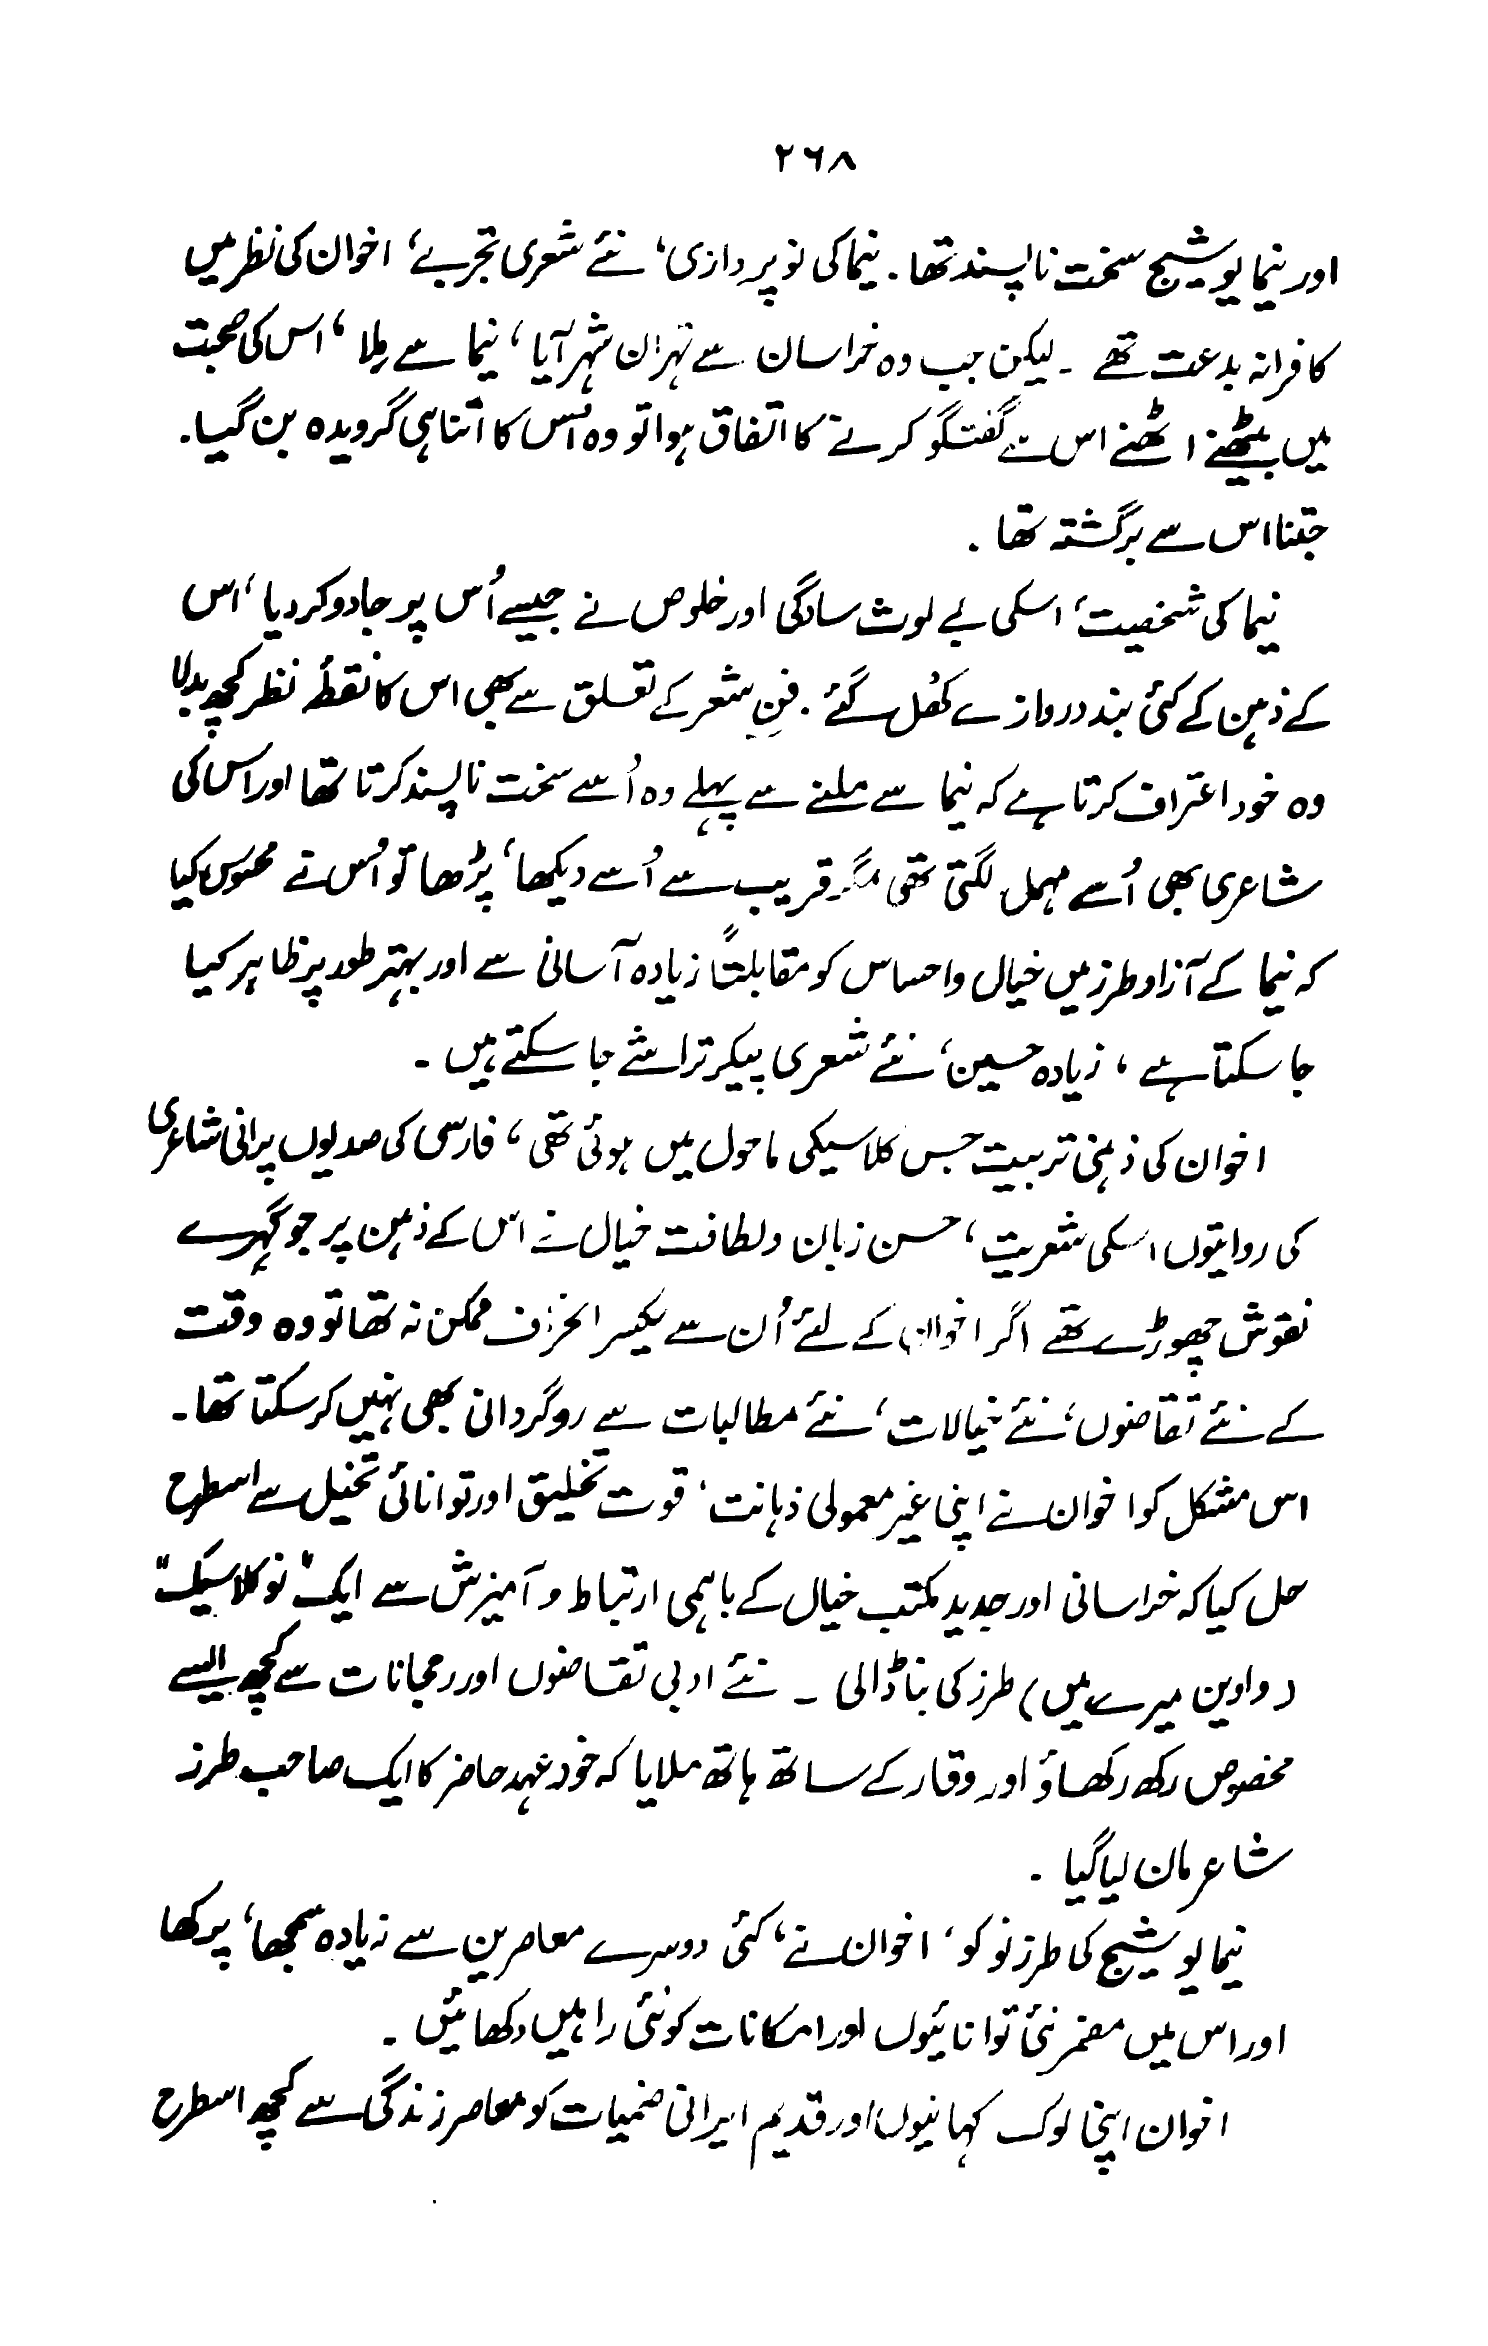 ۲۶۸
اور نیما یوشیج سخت ناپسند تھا۔ نیما کی نو پردازی، نئے شعری تجربے، اخوان کی نظر میں
کافرانہ بدعت تھے۔ لیکن جب وہ خراسان سے تہران شہر آیا، نیما سے مِلا، اس کی صحبت
میں بیٹھنے اٹھنے اس سے گفتگو کرنے کا اتفاق ہوا تو وہ اُس کا اتنا ہی گرویدہ بن گیا۔
جتنا اس سے برگشتہ تھا۔
نیما کی شخصیت، اسکی بے لوث سادگی اور خلوص نے جیسے اُس پر جادو کر دیا، اس
کے ذہن کے کئی بند دروازے کھُل گئے۔ فنِ شعر کے تعلق سے بھی اس کا نقطۂ نظر کچھ بدلا
وہ خود اعتراف کرتا ہے کہ نیما سے ملنے سے پہلے وہ اُسے سخت ناپسند کرتا تھا اور اس کی
شاعری بھی اُسے مہمل لگتی تھی مگر قریب سے اُسے دیکھا، پڑھا تو اُس نے محسوس کیا
کہ نیما کے آزاد طرز میں خیال و احساس کو مقابلتاً زیادہ آسانی سے اور بہتر طور پر ظاہر کیا
جا سکتا ہے، زیادہ حسین، نئے شعری پیکر تراشے جا سکتے ہیں۔
اخوان کی ذہنی تربیت جس کلاسیکی ماحول میں ہوئی تھی، فارسی کی صدیوں پرانی شاعری
کی روایتوں، اسکی شعریت، حسن زبان و لطافت خیال نے اس کے ذہن پر جو گہرے
نقوش چھوڑے تھے اگر اخوان کے لئے اُن سے یکسر انحراف ممکن نہ تھا تو وہ وقت
کے نئے تقاضوں، نئے خیالات، نئے مطالبات سے روگردانی بھی نہیں کر سکتا تھا۔
اس مشکل کو اخوان نے اپنی غیر معمولی ذہانت، قوت تخلیق اور توانائی تخیل سے اسطرح
حل کیا کہ خراسانی اور جدید مکتب خیال کے باہمی ارتباط و آمیزش سے ایک "نو کلاسیک"
(واوین میرے ہیں) طرز کی بنا ڈالی ۔ نئے ادبی تقاضوں اور رجحانات سے کچھ ایسے
مخصوص رکھ رکھاؤ اور وقار کے ساتھ ہاتھ ملایا کہ خود عہد حاضر کا ایک صاحب طرز
شاعر مان لیا گیا۔
نیما یوشیج کی طرز نو کو، اخوان نے، کئی دوسرے معاصرین سے زیادہ سمجھا، پرکھا
اور اس میں مضمر نئی توانائیوں اور امکانات کو نئی راہیں دکھائیں۔
اخوان اپنی لوک کہانیوں اور قدیم ایرانی ضمیات کو معاصر زندگی سے کچھ اسطرح